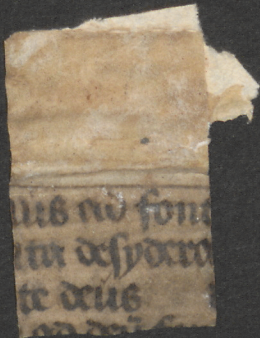 uus ad font
ita desydera
te deus
ad deū